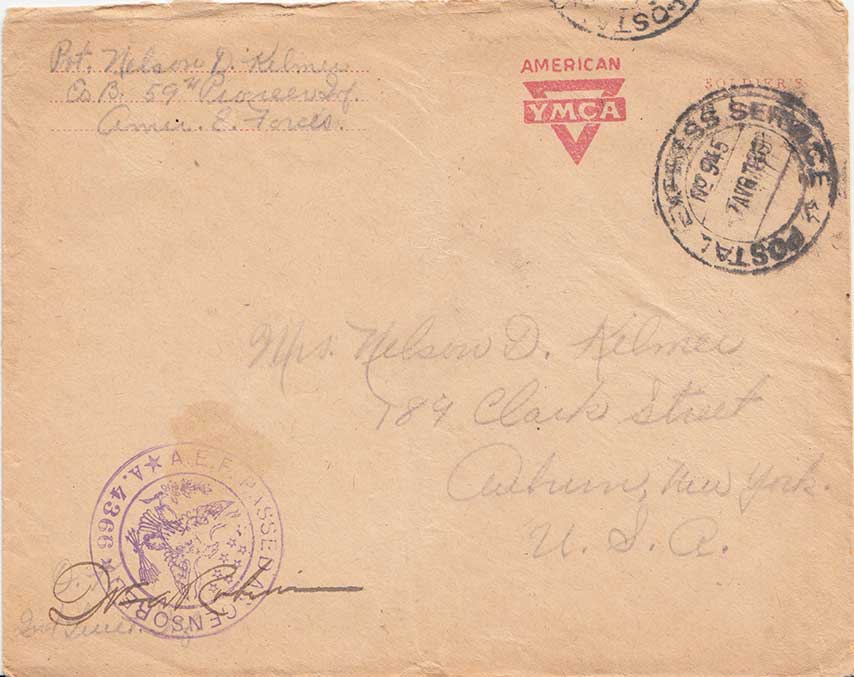 Pvt. Nelson D. Kilmer
Co B. 59th Pioneer Inf.
Amer. E. Forces.
AMERICAN
YMCA
SOLDIER'S
POSTAL
POSTAL EXPRESS SERVICE
No 945
7 AVR
Mrs. Nelson D. Kilmer
189 Clark Street
Auburn, New York.
U. S. A.
A.E.F. PASSED AS CENSORED
A. 4366